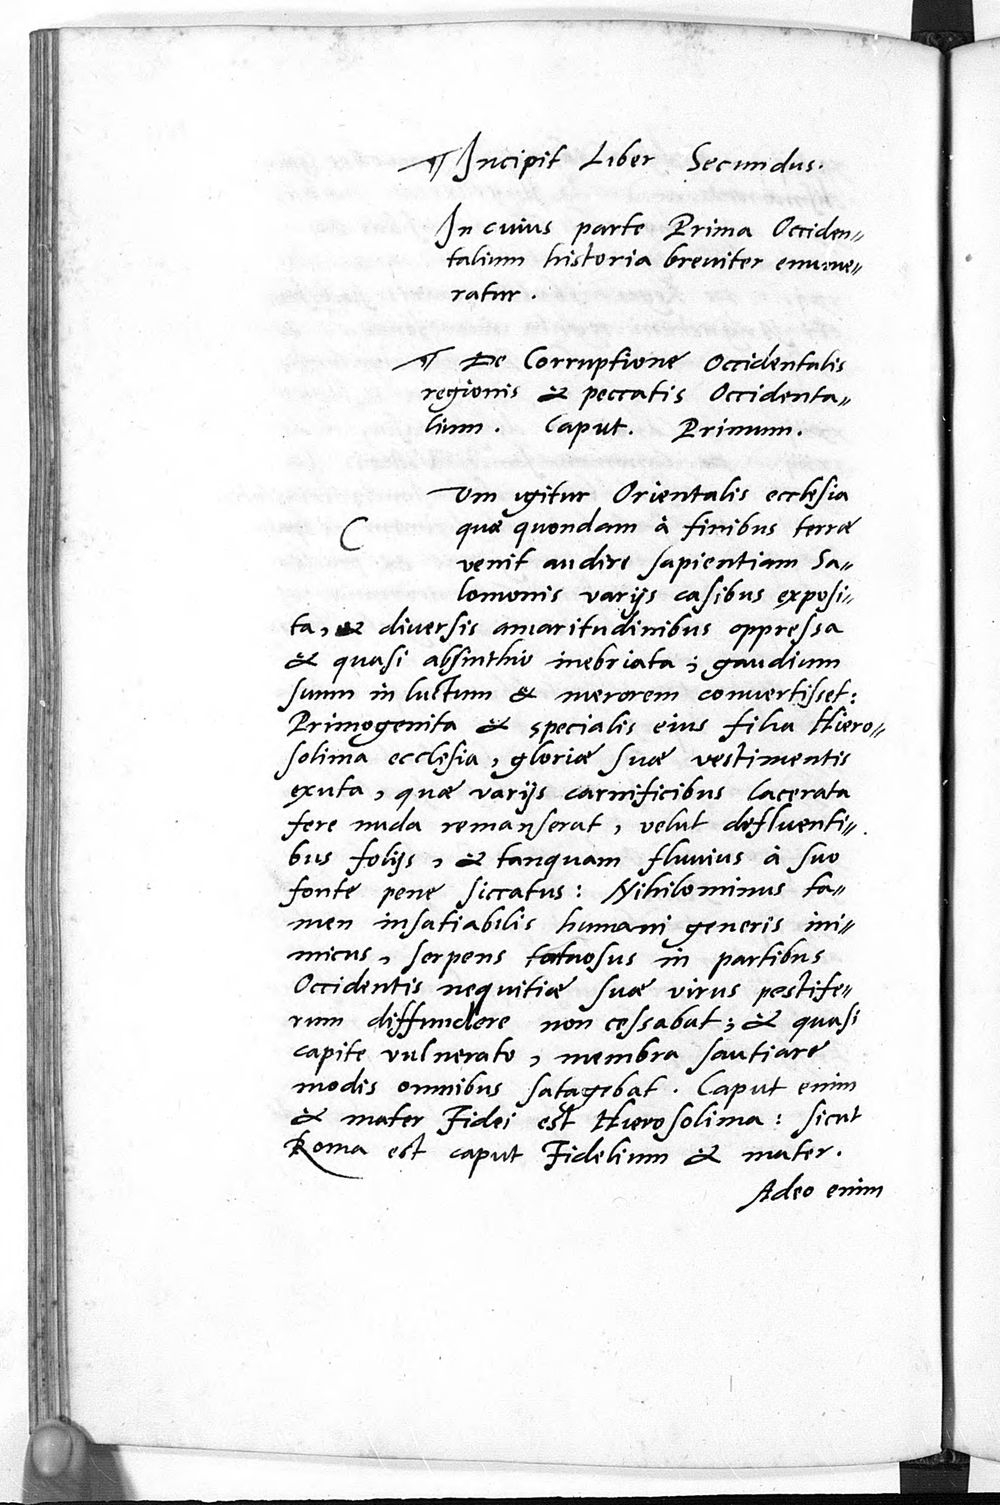 ¶ Incipit Liber Secundus.
In cuius parte Prima Occiden〃
talium historia breuiter enume〃
ratur.
¶ De Corruptione Occidentalis
regionis & peccatis Occidenta〃
lium. Caput. Primum.
Cum igitur Orientalis ecclesia
quæ quondam à finibus terræ
venit audire sapientiam Sa〃
lomonis varijs casibus exposi〃
ta, & diversis amaritudinibus oppressa
& quasi absinthio inebriata; gaudium
suum in luctum & merorem convertisset:
Primogenita & specialis eius filia Hiero〃
solima ecclesia, gloriæ suæ vestimentis
exuta, quæ varijs carnificibus lacerata
fere nuda remanserat, velut defluenti〃
bus folijs, & tanquam fluvius à suo
fonte pene siccatus: Nihilominus ta〃
men insatiabilis humani generis ini〃
micus, serpens in partibus
Occidentis nequitiæ suæ virus pestife〃
rum diffundere non cessabat; & quasi
capite vulnerato, membra sautiare
modis omnibus satagebat. Caput enim
& mater Fidei est Hierosolima: sicut
Roma est caput Fidelium & mater.
Adeo enim